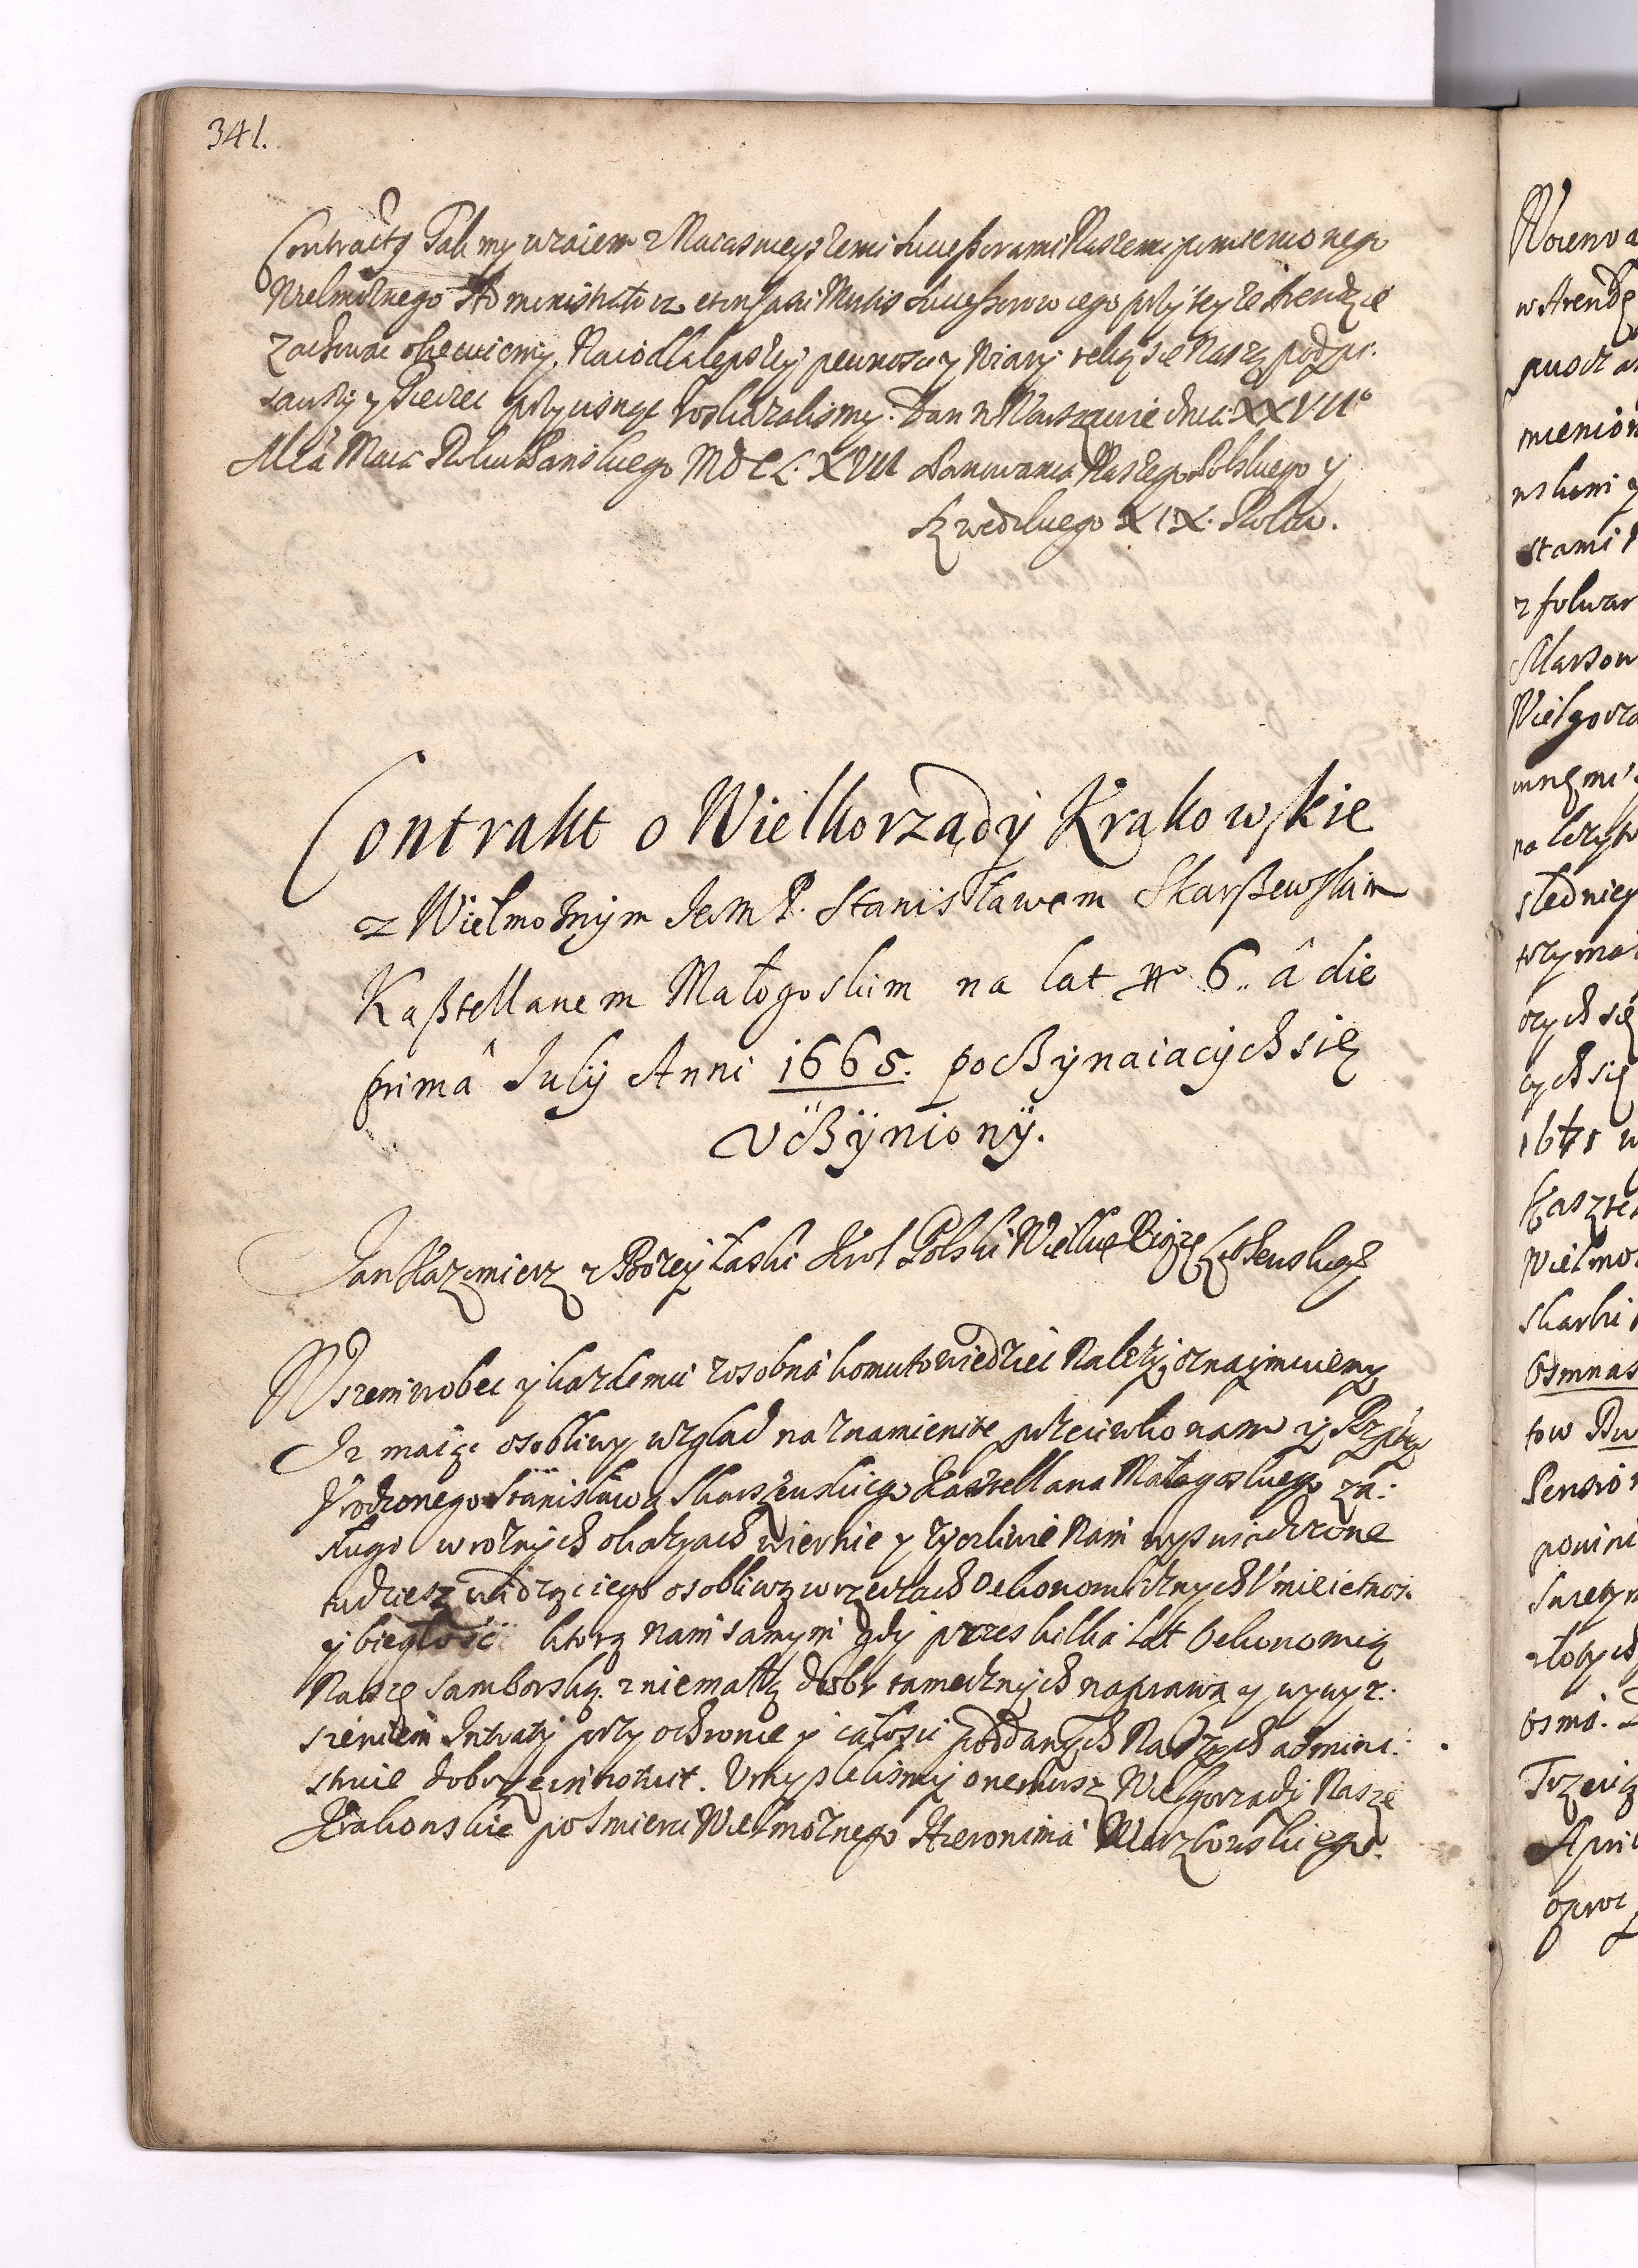 341.
Contracty Tak my wzaiem z Naiasnieyszemi Successorami Naszemi pomienionego
Wielmożnego Administratora et in casu Mortis Successorow iego przy teyże Arendzie
Zachować obiecuiemy. Na co dla lepszey pewnosci y Wiary ręką się Naszą podpi:
sawszy y Pieczęć przycisnąć roskazalismy. Dan w Warszawie dnia XXVII°
Mca Maia Roku Panskiego MDCLXVII Panowania Naszego Polskiego y
Szwedzkiego XIX. Roku.
Contrakt o Wielkorządy Krakowskie
z Wielmożnym JeoMP. Stanisławem Skarszewskim
Kasztellanem Małogoskim na lat No 6. â die
prima Julij Anni 1665. poczynaiacych się
vczyniony.
Jan Kazimierz z Bożey Łaski Krol Polski Wielkie Xiąże Litewskie
Wszem wobec y kazdemu zosobna komu to wiedzieć Należy, oznaymuiemy
Iz maiąc osobliwy wzglad na znamienite przeciwko nam y Rzptey
Vrodzonego Stanisława Skarszewskiego Kasztellana Małogoskiego za:
sługi w roznych okazyach wiernie y zyczliwie Nam wyswiadczone
tudziesz widząc iego osobliwą w rzeczach Oekonomicznych Vmieietnosc
y biegłosć ktorą nam samym gdy przes kilka Lat Oekonomią
Naszę Samborską z niemałą dobr tameznych naprawą y wywyz:
szeniem Intraty przy ochronie y całosci poddanych Naszych admini:
struie dobrze innotuit. Vmyslelismy onemusz Wielgorzady Nasze
Krakowskie po smierci Wielmożnego Hieronima Wierzbowskiego
Woiewo
w Arendę
puscz
mienion
stami
z folwar
Wielgorza
trzyma
ych się
cych się
1671 w
Kasztel
Wielmo
Skarbu
Osmnas
tow
Pensio
powin
złotych
osmi.
Apri
oproc